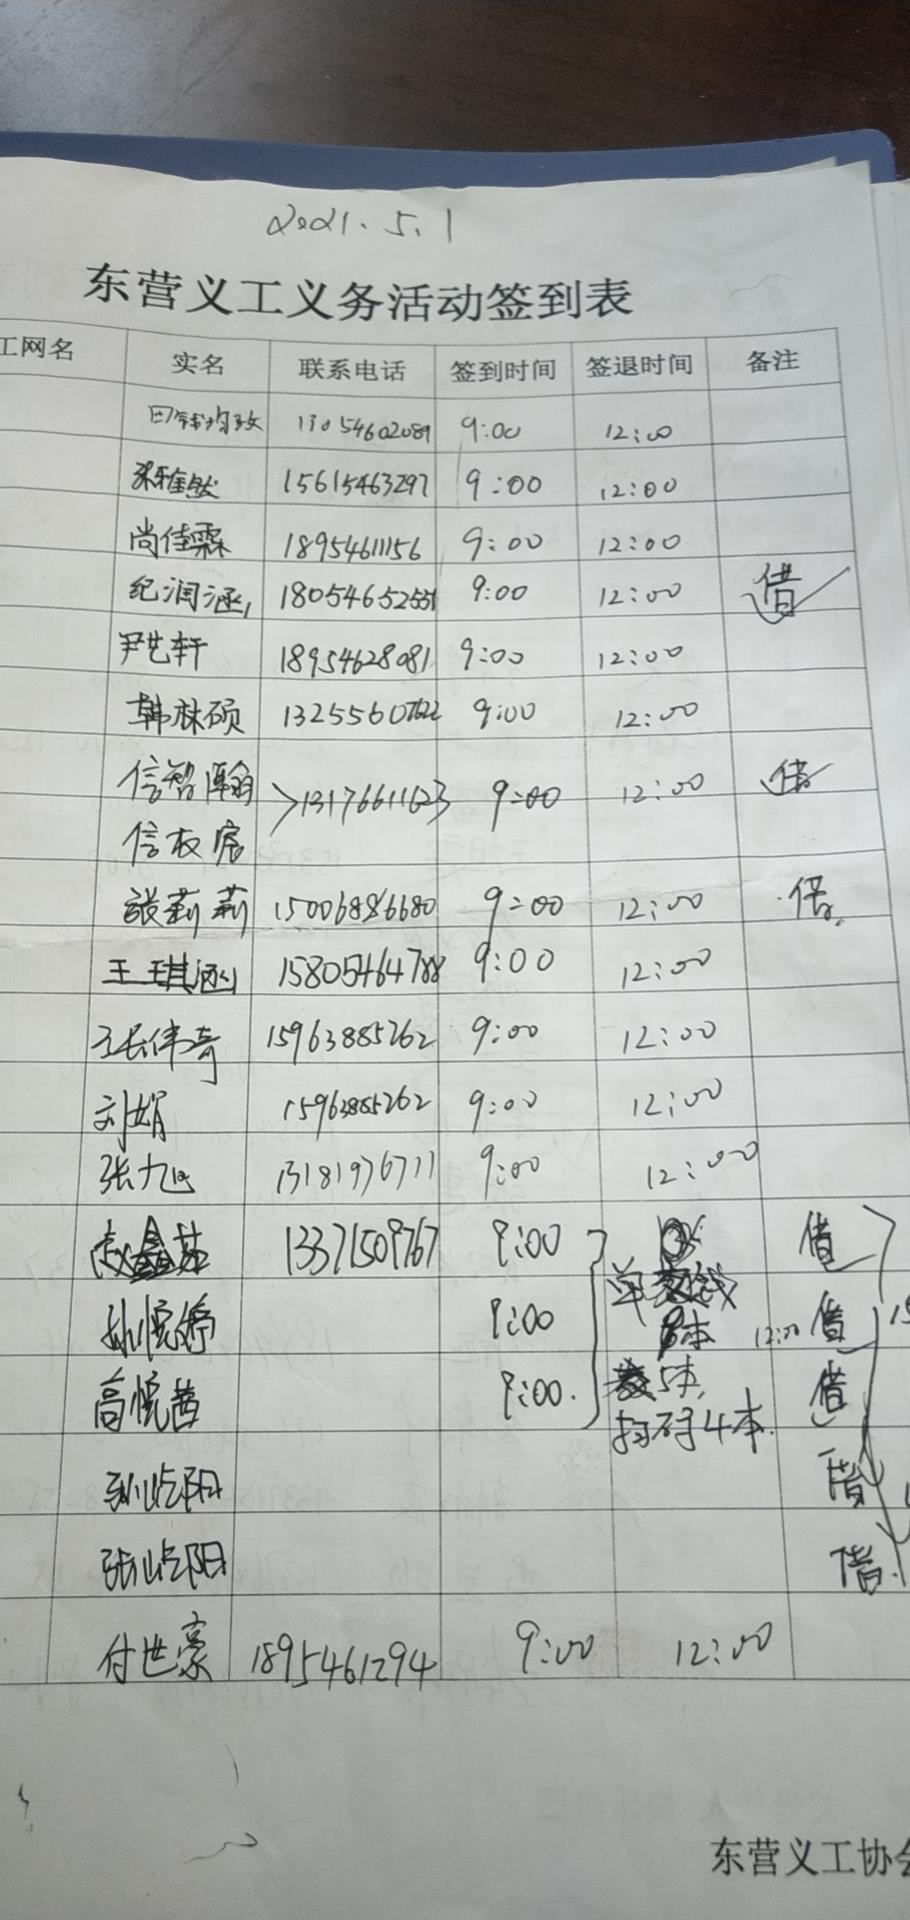 2021.5.1
东营义工义务活动签到表
工网名 实名 联系电话 签到时间 签退时间 备注
13054602089 9:00 12:00
15615463297 9:00 12:00
尚佳霖 18954611156 9:00 12:00
纪润涵 18054652551 9:00 12:00 借
尹艺轩 18954628081 9:00 12:00
韩林硕 13255607622 9:00 12:00
信智翰 13176611623 9:00 12:00 借
信权宸
张莉莉 15006886680 9:00 12:00 借
王琪涵 15805464788 9:00 12:00
张伟奇 15963885262 9:00 12:00
刘娟 15963885262 9:00 12:00
张九旭 13181976711 9:00 12:00
赵鑫茹 13371509767 9:00 借
孙悦婷 9:00 12:00 借
高悦茜 9:00. 5本, 借
扫码4本.
刘屹阳 借
张屹阳 借.
付世豪 1895461294 9:00 12:00
东营义工协会